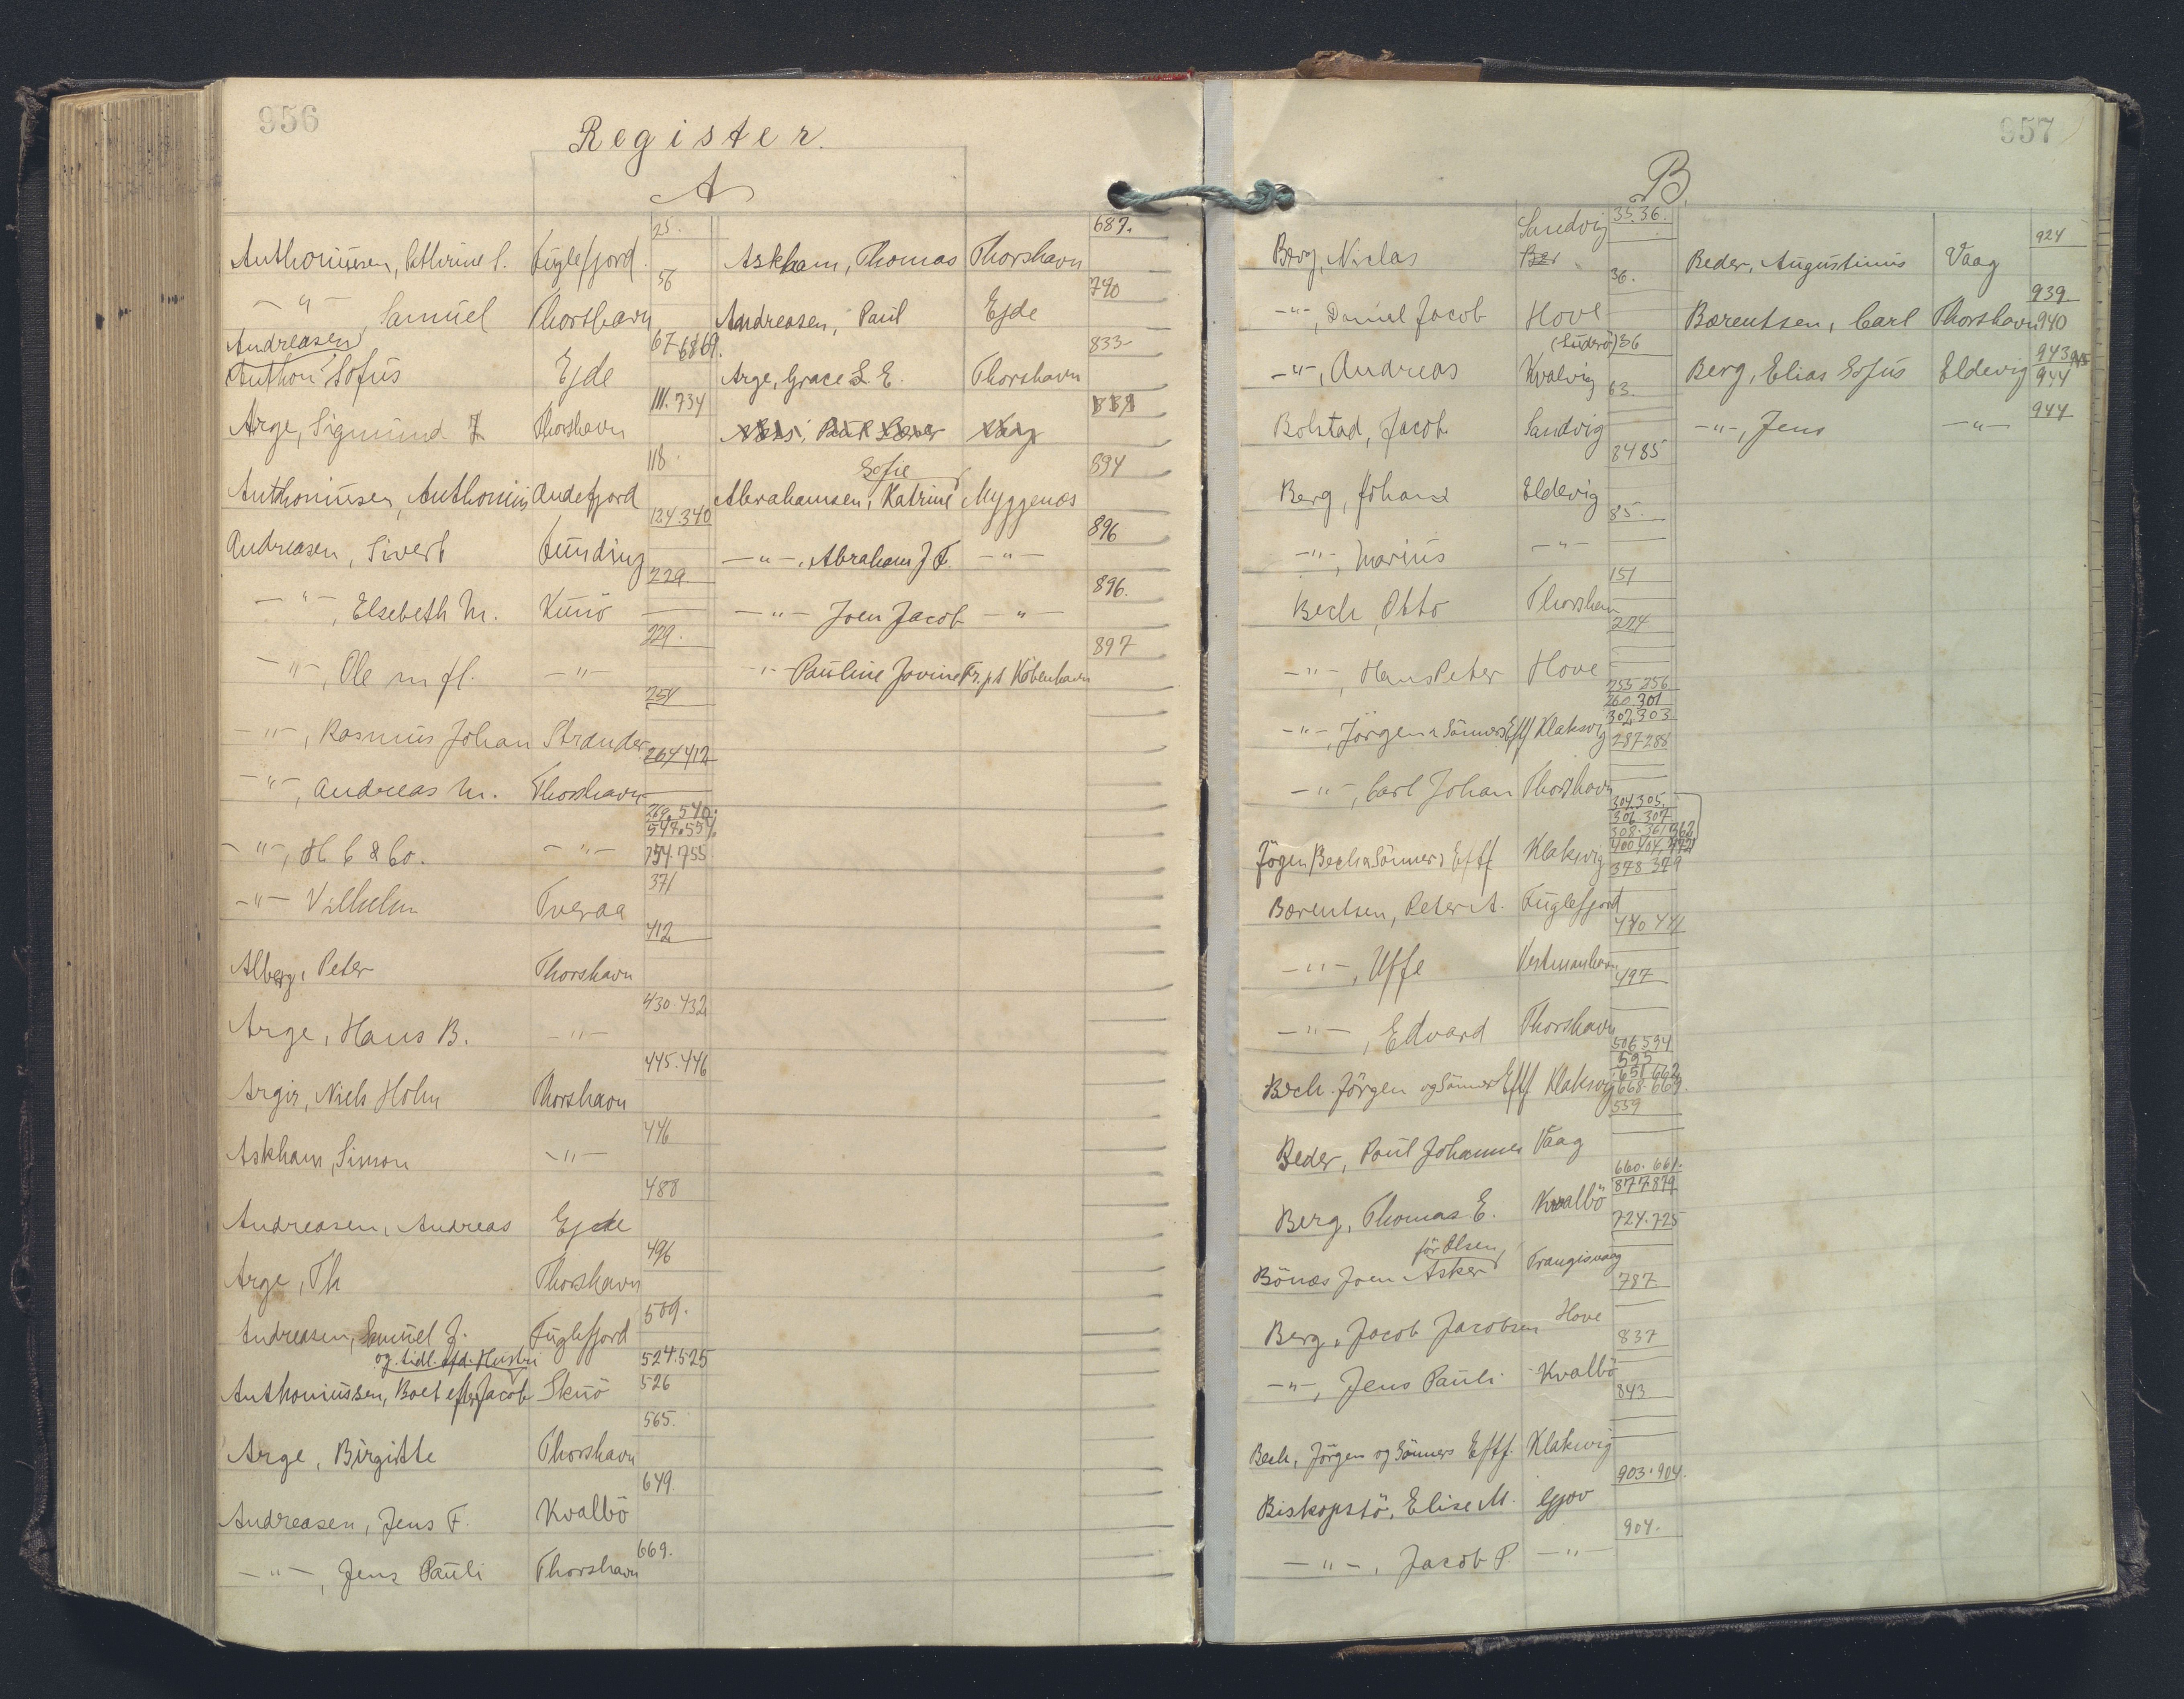 956
Register.
A
25.
Anthoniussen, Cathrine S. Fuglefjord.
56
-"- Samuel Thorshavn
67-6869.
Andreasen
Anthon Sofus Ejde
111.734
Arge, Sigmund Thorshavn
118.
Anthoniusen, Anthonius Andefjord
124.340
Andreasen, Sivert Funding
229.
-"-, Elsebeth M. Kunö
229.
-"-, Ole m fl. -"-
254
-"-, Rasmus Johan Strander
264 412
-"-, Andreas M. Thorshavn
269.540.
547.554.
754.755
-"-, H C & Co. -"-
371
-"- Vilhelm Tveraa
412
Alberg, Peter Thorshavn
430.432
Arge, Hans B. -"-
445.446
Argir, Niels Holm Thorshavn
446
Askham, Simon -"-
488
Andreasen, Andreas Ejde
496
Arge, Th Thorshavn
509.
Andreasen, Samuel J. Fuglefjord
524.525
og tidl. afd. Hustru
526
Anthoniussen, Boet efter Jacob Skuö
565.
Arge, Birgitte Thorshavn
649.
Andreasen, Jens F. Kvalbö
669.
-"-, Jens Pauli Thorshavn
687.
Askham, Thomas Thorshavn
790
Andreasen, Paul Ejde
833
Arge, Grace L E. Thorshavn
Vaag
894
Sofie
Abrahamsen, Katrine Myggenæs
896
-"-, Abraham J F. -"-
896.
-"- Joen Jacob -"-
897
-"- Pauline Jovine Fr. pt København
957
B
35.36.
Sandvig
Berg, Niclas
36.
-"-, Daniel Jacob Hove
(Suderö) 36
-"-, Andreas Kvalvig
63.
Bolstad, Jacob Sandvig
84 85
Berg, Johan Eldevig
85.
-"-, Marius -"-
151
Bech, Otto Thorshavn
224
-"-, Hans Peter Hove
255 256
260.301
302.303
-"-, Jörgen & Sönners Eftf Klaksvig
287-288
-"-, Carl Johan Thorshavn
304.305.
306.307
308.361 362
400 404.472
Jögen Bech & Sönners Eftf Klaksvig
378 379
Bærentsen, Peter A. Fuglefjord
440 441
-"-, Uffe Vestmanhavn
497
-"-, Edvard Thorshavn
506 594
595
651 662
668.669.
Bech. Jörgen og Sönners Eftf Klaksvig
559
Beder, Poul Johannes Vaag
660.661.
877 879
Berg, Thomas E. Kvalbö
724.725
för Olsen
Bönæs Joen Asker Trangisvaag
787
Berg, Jacob Jacobsen Hove
837
-"-, Jens Pauli Kvalbö
843
Bech, Jörgen og Sönners Eftf. Klaksvig
903.904.
Biskopstö, Elise M. Gjov
904.
-"-, Jacob P -"-
924
Beder, Augustinus Vaag
939
Bærentsen, Carl Thorshavn 940
943 945
Berg, Elias Sofus Eldevig 944
944
-"-, Jens -"-